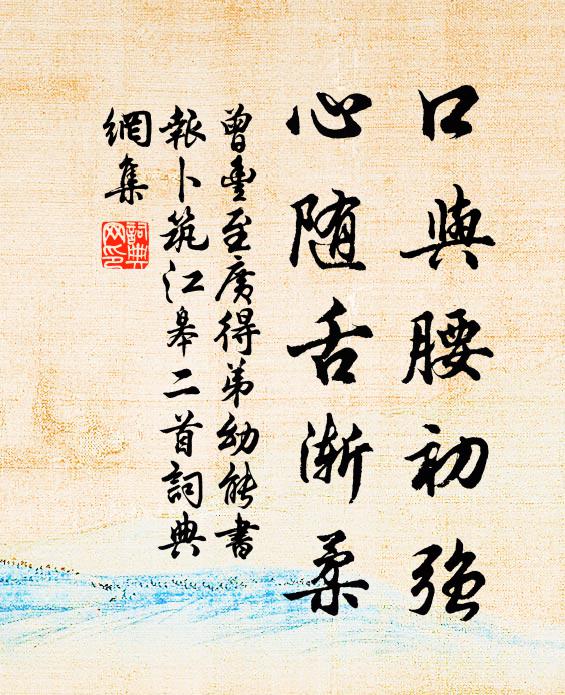 口與腰初強
心随舌渐柔
曾豐至廣得弟幼能書
報卜筑江皋二首詞典
網集
詞典
网印